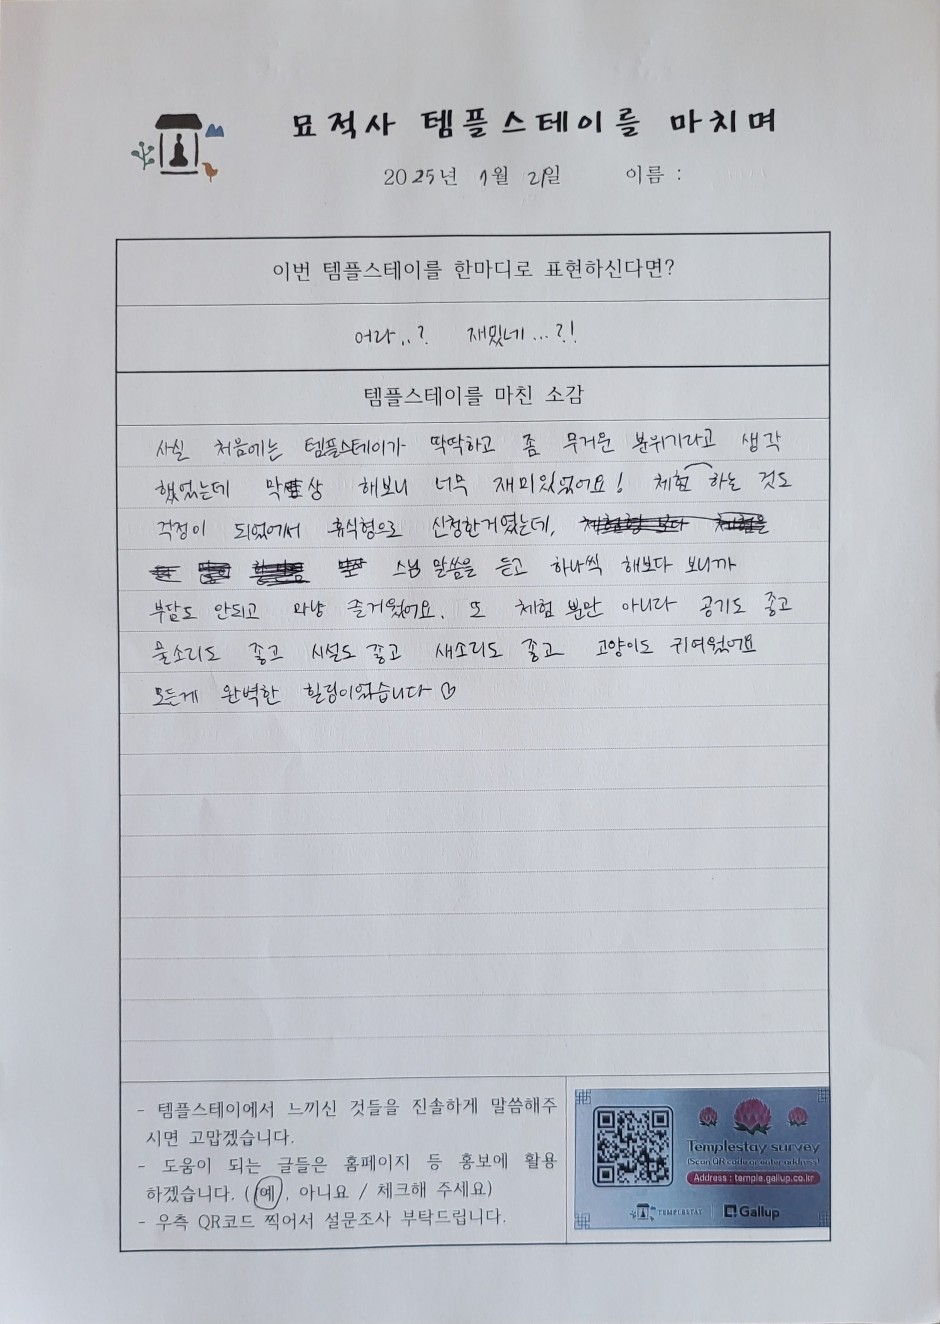 묘적사 템플스테이를 마치며
2025년 1월 21일 이름 :
이번 템플스테이를 한마디로 표현하신다면?
어라..? 재밌네...?!
템플스테이를 마친 소감
사실 처음에는 템플스테이가 딱딱하고 좀 무거운 분위기라고 생각
했었는데 막상 해보니 너무 재미있었어요! 체험 하는 것도
걱정이 되었어서 휴식형으로 신청한거였는데,
스님 말씀을 듣고 하나씩 해보다 보니까
부담도 안되고 마냥 즐거웠어요. 또 체험 뿐만 아니라 공기도 좋고
물소리도 좋고 시설도 좋고 새소리도 좋고 고양이도 귀여웠어요
모든게 완벽한 힐링이었습니다 ♡
- 템플스테이에서 느끼신 것들을 진솔하게 말씀해주
시면 고맙겠습니다.
- 도움이 되는 글들은 홈페이지 등 홍보에 활용
하겠습니다. (예, 아니요 / 체크해 주세요)
- 우측 QR코드 찍어서 설문조사 부탁드립니다.
Templestay survey
(Scan QR code or enter address)
Address : temple.gallup.co.kr
TEMPLESTAY Gallup